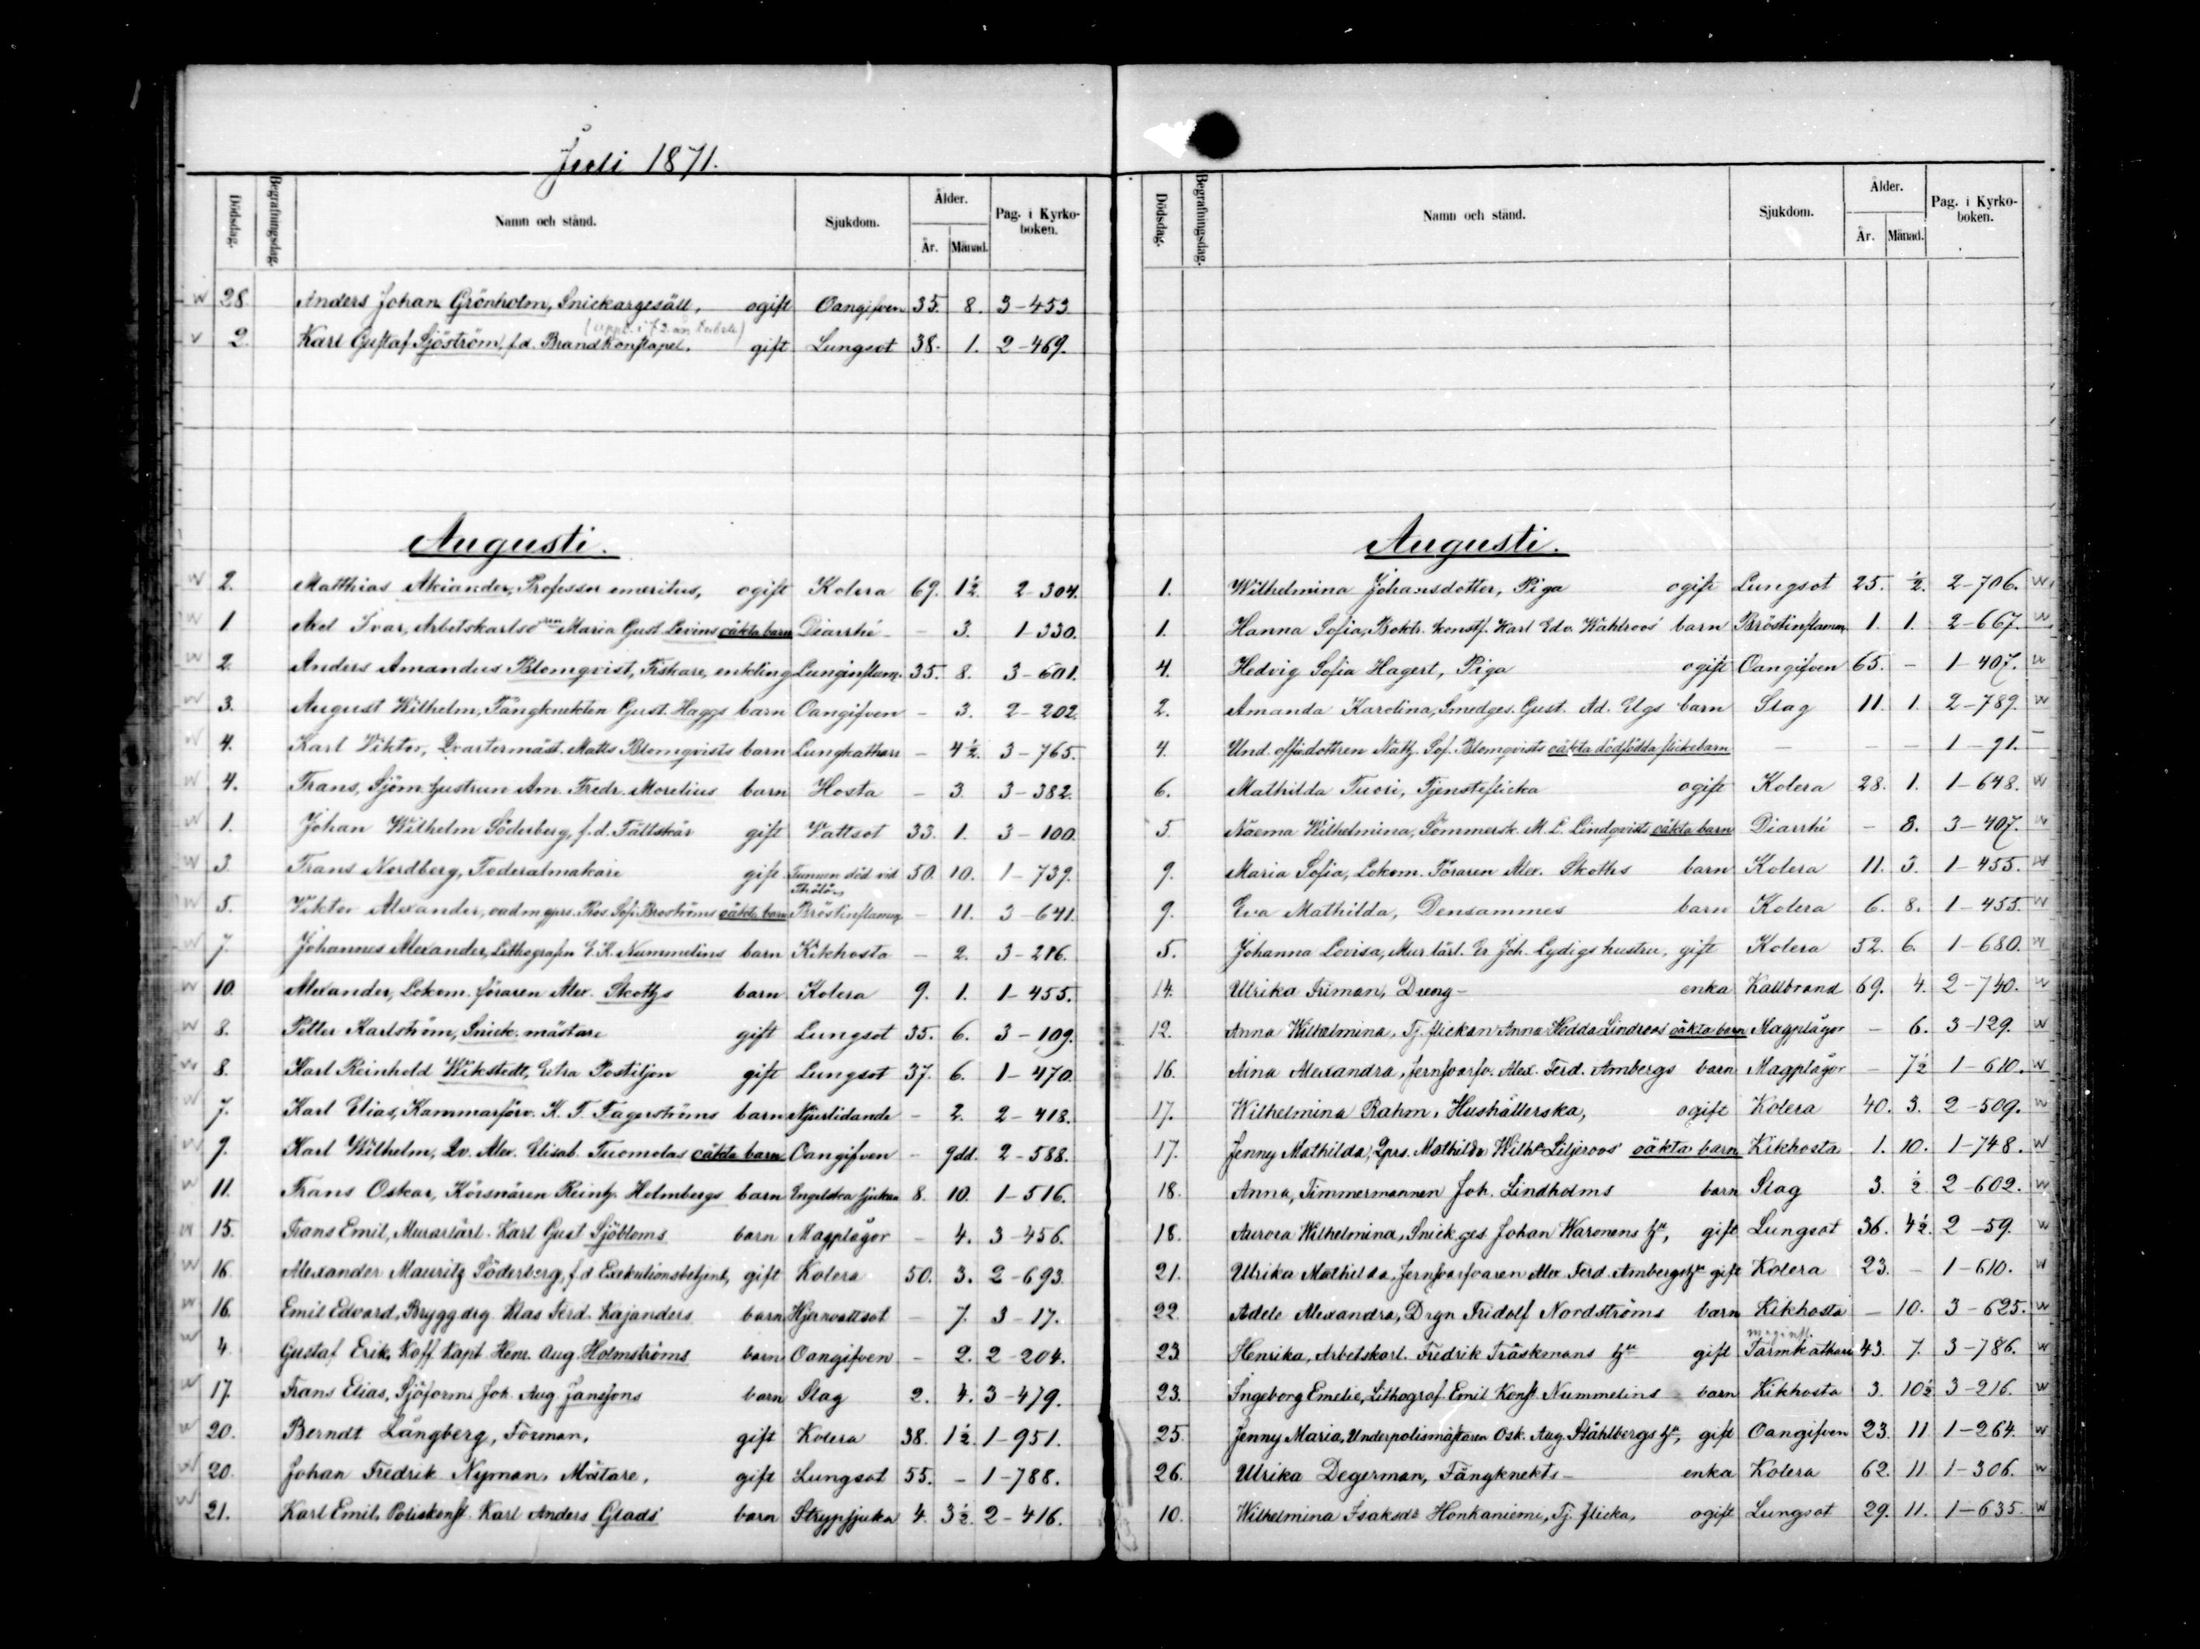 Juli 1871.
Dödsdag. Begrafningsdag. Namn och stånd. Sjukdom. Ålder. År. Månad. Pag. i Kyrkoboken.
28. Anders Johan Grönholm, Snickargesäll, ogift Oangifven 35. 8. 3-453
2. Karl Gustaf Sjöström, f.d. Brandkonstapel. gift Lungsot 38. 1. 2-469.
Augusti.
2. Matthias Akiander, Professor emeritus, ogift Kolera 69. 1½. 2-304.
1. Axel Ivar, Arbetskarlsd Maria Gust. Levins oäkta barn Diarrhé - 3. 1-330.
2. Anders Amandus Blomqvist, Fiskare, enkling Lunginflam. 35. 8. 3-601.
3. August Wilhelm, Fångknekten Gust. Häggs barn Oangifven - 3. 2-202.
4. Karl Viktor, Qvartermäst. Matts Blomqvists barn Lungkatharr - 4½. 3-765.
4. Frans, Sjöm. hustrun Am. Fredr. Morelius barn Hosta - 3. 3-382.
1. Johan Wilhelm Söderberg, f.d. Fältskär gift Vattsot 33. 1. 3-100.
3. Frans Nordberg, Foderalmakare gift Funnen död vid Thölö 50. 10. 1-739.
5. Viktor Alexander, Ros. Sofi. Broströms oäkta barn Bröstinflamn. - 11. 3-641.
7. Johannes Alexander, Lithografen E. K. Nummelins barn Kikhosta - 2. 3-216.
10. Alexander, Lokom. föraren Alex. Skotts barn Kolera 9. 1. 1-455.
8. Petter Karlström, Snick. mästare gift Lungsot 35. 6. 3-109.
8. Karl Reinhold Wikstedt, Extra Postiljon gift Lungsot 37. 6. 1-470.
7. Karl Elias, Kammarförv. K. F. Fagerströms barn Njurlidande - 2. 2-418.
9. Karl Wilhelm, Qv. Alex. Elisab. Tuomolas oäkta barn Oangifven - 9dd. 2-588.
11. Frans Oskar, Körsnären Reinh. Holmbergs barn Engelska sjukan 8. 10. 1-516.
15. Frans Emil, Murarlärl. Karl Gust Sjöbloms barn Magplågor - 4. 3-456.
16. Alexander Mauritz Söderberg, f.d. Exekutionsbetjent, gift Kolera 50. 3. 2-693.
16. Emil Edvard, Bryggdrg Klas Ferd. Kajanders barn Hjernvattsot - 7. 3-17.
4. Gustaf Erik, Koff. Kapt Henr. Aug. Holmströms barn Oangifven - 2. 2-204.
17. Frans Elias, Sjöform. Joh. Aug Janssons barn Slag 2. 4. 3-479.
20. Berndt Långberg, Forman, gift Kolera 38. 1½ 1-951.
20. Johan Fredrik Nyman, Mätare, gift Lungsot 55. - 1-788.
21. Karl Emil, Poliskonst. Karl Anders Glads barn Strypsjuka 4. 3½. 2-416.
Dödsdag. Begrafningsdag. Namn och stånd. Sjukdom. Ålder. År. Månad. Pag. i Kyrkoboken.
Augusti.
1. Wilhelmina Johansdotter, Piga ogift Lungsot 25. ½. 2-706.
1. Hanna Sofia, Boktr. konstf. Karl Edv. Wahlroos' barn Bröstinflamn. 1. 1. 2-667.
4. Hedvig Sofia Hagert, Piga ogift Oangifven 65. - 1-407.
2. Amanda Karolina, Smedges. Gust. Ad. Elgs barn Slag 11. 1. 2-789.
4. Und. offidottren Nath. Sof. Blomqvists oäkta dödfödda flickebarn - - - 1-91.
6. Mathilda Tuori, Tjensteflicka ogift Kolera 28. 1. 1-648.
5. Naema Wilhelmina, Sömmersk. M. L. Lindqvists oäkta barn Diarrhé - 8. 3-407.
9. Maria Sofia, Lokom. Föraren Alex. Skotts barn Kolera 11. 3. 1-455.
9. Eva Mathilda, Densammes barn Kolera 6. 8. 1-455.
5. Johanna Lovisa, Murlärl. Er. Joh. Lydigs hustru, gift Kolera 52. 6. 1-680.
14. Ulrika Friman, Dreng- enka Kallbrand 69. 4. 2-740.
12. Anna Wilhelmina, Tj. flickan Anna Hedda Lindroos oäkta barn Magplågor - 6. 3-129.
16. Aina Alexandra, Jernsvarfv. Alex. Ferd. Ambergs barn Magplågor - 7½ 1-610.
17. Wilhelmina Rahm, Hushållerska, ogift Kolera 40. 3. 2-509.
17. Jenny Mathilda, Qprs. Mathilda Wilh. Liljeroos' oäkta barn Kikhosta 1. 10. 1-748.
18. Anna, Timmermannen Joh. Lindholms barn Slag 3. ½. 2-602.
18. Aurora Wilhelmina, Snick. ges. Johan Waronens hu, gift Lungsot 36. 4½. 2-59.
21. Ulrika Mathilda, Jernsvarfvaren Alex Ferd. Ambergs hu gift Kolera 23. - 1-610.
22. Adele Alexandra, Drgn Fridolf Nordströms barn Kikhosta - 10. 3-625.
23 Henrika, Arbetskarl. Fredrik Träskmans hu gift Tarmkatharr 43. 7. 3-786.
23. Ingeborg Emelie, Lithograf. Emil Konst. Nummelins barn Kikhosta 3. 10½ 3-216.
25. Jenny Maria, Underpolismästaren Osk. Aug. Ståhlbergs hu, gift Oangifven 23. 11 1-264.
26. Ulrika Degerman, Fångknekts- enka Kolera 62. 11 1-306.
10. Wilhelmina Isaksdr Honkaniemi, Tj. flicka, ogift Lungsot 29. 11. 1-635.